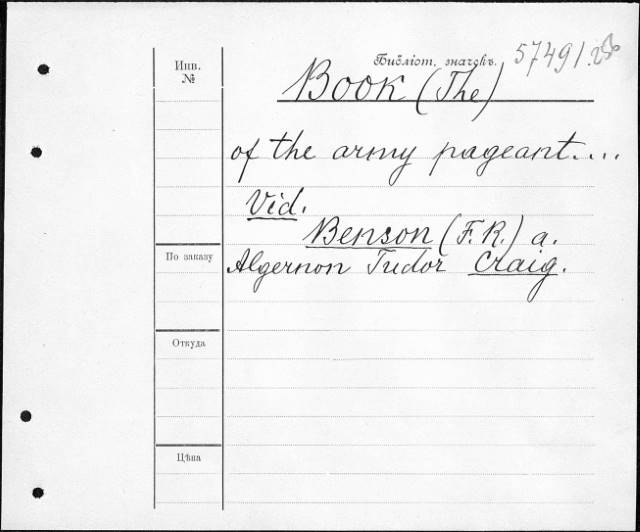 Инв.
№
Библіот. значекъ.
57491.
Book (The)
of the army pageant....
Vid.
Benson (F. R.) a.
Algernon Tudor Craig.
По заказу
Откуда
Цѣна